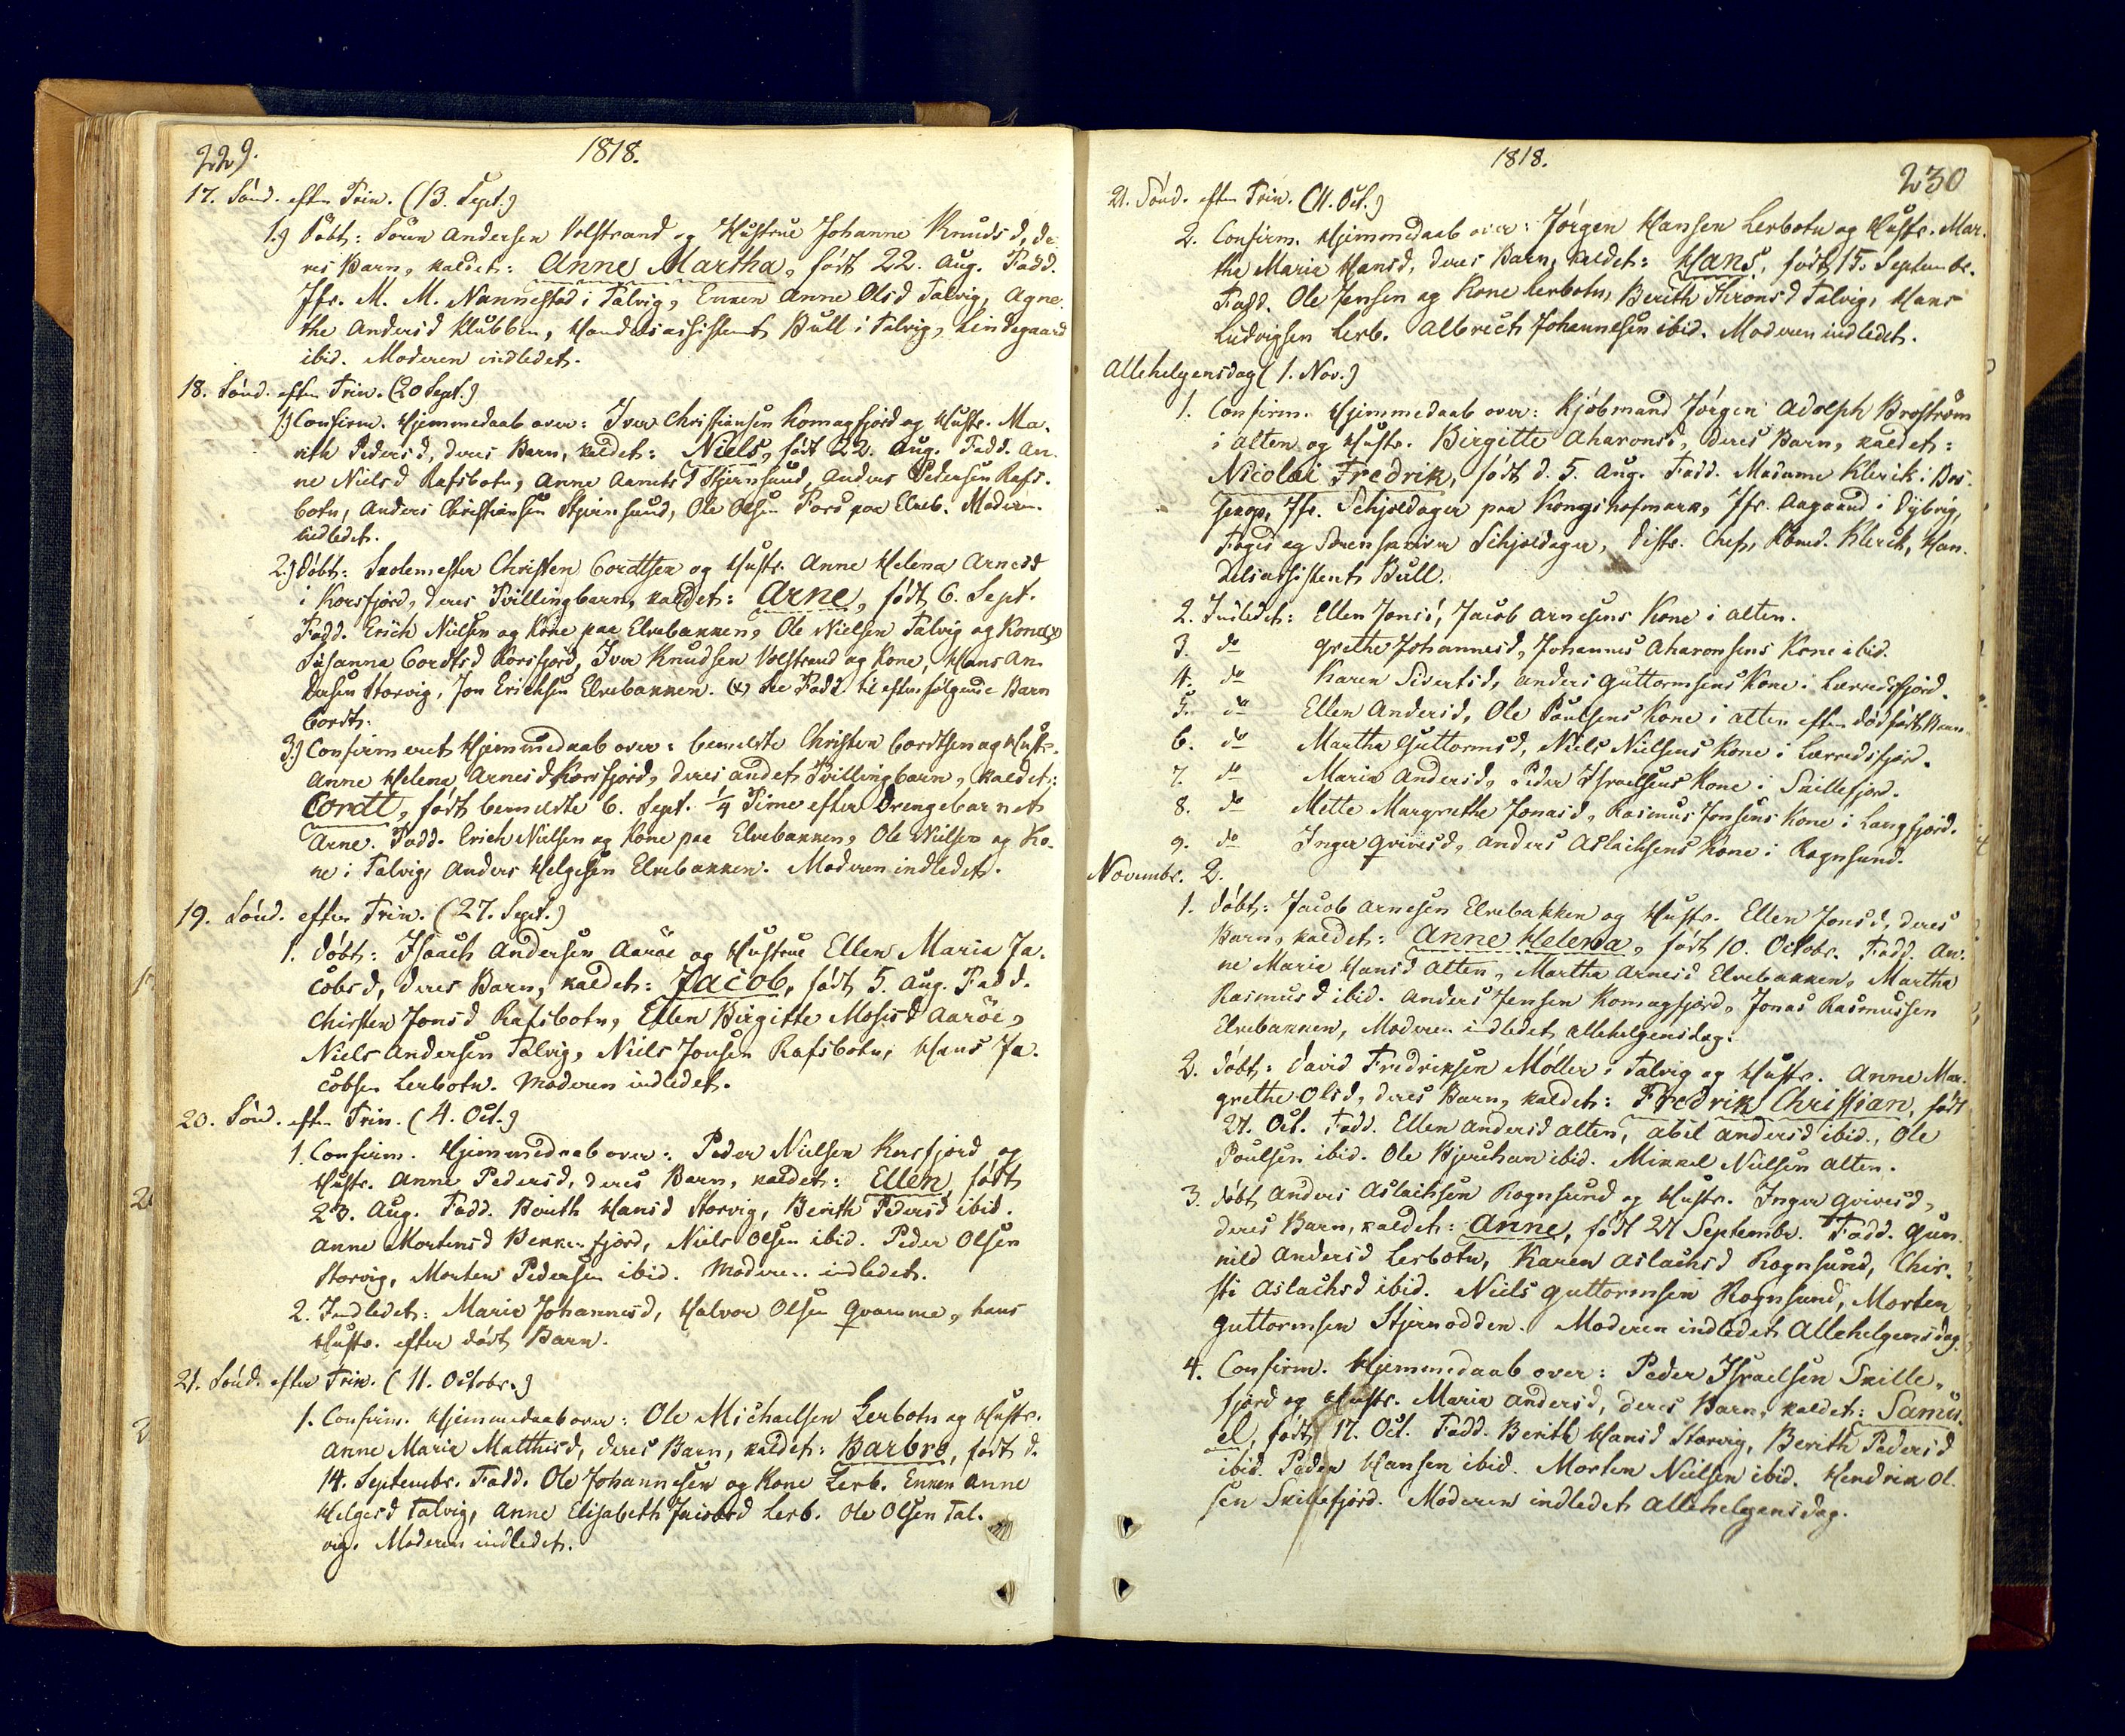 229.
1818.
17. Sønd. efter Trin. (13. Sept.)
1.) Døbt: Sören Andersen Volstrand og Hustrue Johanne Knudsd, de
res Barn, kaldet: Anne Martha, født 22. Aug. Fadd.
Jfr. M. M. Nannestad i Talvig, Enken Anne Olsd Talvig, Agne
the Andersd Klubben, Handelsassistent Bull i Talvig, Lindegaard
ibid. Moderen indledet.
18. Sønd. efter Trin. (20 Sept.)
1.) Confirm. Hjemmedaab over: Iver Christiansen Komagfjord og Hustr. Ma-
rith Pedersd, deres Barn, kaldet: Niels, født 22. Aug. Fadd. An-
ne Nielsd Rafsbotn, Anne Aanetsd Stjernsund, Anders Pedersen Rafs-
botn, Anders Christiansen Stjernsund, Ole Olsen Fors paa Elveb. Moderen
indledet.
2.) Døbt: Skolemester Christen Cordtsen og Hustr. Anne Helena Arnesd
i Korsfjord, deres Tvillingbarn, kaldet: Arne, født 6. Sept.
Fadd. Erich Nielsen og Kone paa Elvebakken, Ole Nielsen Talvig og Kone (x)
Susanna Cordtsd Korsfjord, Iver Knudsen Volstrand og Kone, Hans An-
dersen Storvig, Jon Erichsen Elvebakken. (x) See Fadd. til efterfølgende Barn
Cordt.
3.) Confirmeret Hjemmedaab over: bemeldte Christen Cordtsen og Hustr.
Anne Helena Arnesd Korsfjord, deres andet Tvillingbarn, kaldet:
Cordt, født bemeldte 6. Sept. 1/4 Time efter Drengebarnet
Arne. Fadd. Erich Nielsen og Kone paa Elvebakken, Ole Nielsen og Ko-
ne i Talvig, Anders Helgesen Elvebakken. Moderen indledet.
19. Sønd. efter Trin. (27. Sept.)
1. Døbt: Isaach Andersen Aaröe og Hustrue Ellen Maria Ja-
cobsd, deres Barn, kaldet: Jacob, født 5. Aug. Fadd.
Chirsten Jonsd Rafsbotn, Ellen Birgitte Mosesd Aaröe,
Niels Andersen Talvig, Niels Jonsen Rafsbotn, Hans Ja-
cobsen Lerbotn. Moderen indledet.
20. Sønd. efter Trin. (4. Oct.)
1. Confirm. Hjemmedaab over: Peder Nielsen Korsfjord og
Hustr. Anne Pedersd, deres Barn, kaldet: Ellen, født
23. Aug. Fadd. Berith Hansd Storvig, Berith Pedersd ibid.
Anne Mortensd Bekkerfjord, Niels Olsen ibid. Peder Olsen
Storvig, Morten Pedersen ibid. Moderen indledet.
2. Indledet: Maria Johannesd, Halvor Olsen Qvamme, hans
Hustr. efter dødt Barn.
21. Sønd. efter Trin. (11. Octobr.)
1. Confirm. Hjemmedaab over: Ole Michaelsen Lerbotn og Hustr.
Anne Maria Matthisd, deres Barn, kaldet: Barbro, født d.
14. Septembr. Fadd. Ole Johannesen og Kone Lerb. Enken Anne
Helgesd Talvig, Anne Elisabeth Jacobsd Lerb. Ole Olsen Tal-
vig. Moderen indledet.
1818.
230
21. Sønd. efter Trin. (11. Oct.)
2. Confirm. Hjemmedaab over: Jörgen Hansen Lerbotn og Hustr. Mar-
tha Maria Hansd, deres Barn, kaldet: Hans, født 15. Septembr.
Fadd. Ole Jensen og Kone Lerbotn, Berith Thronsd Talvig, Hans
Ludvigsen Lerb. Albrecht Johannesen ibid. Moderen indledet.
Allehelgensdag (1. Nov.)
1. Confirm. Hjemmedaab over: Kjøbmand Jörgen Adolph Broström
i Alten og Hustr. Birgitte Aharonsd, deres Barn, kaldet:
Nicolai Fredrik, født d. 5. Aug. Fadd. Madame Klerck i Bos-
sekop, Jfr. Schjeldager paa Kongshofmark, Jfr. Aagaard i Dybvig,
Foged og Sorenskriver Schjeldager, Distr. Chef, Kbmd. Klerck, Han-
delsassistent Bull.
2. Indledet: Ellen Jonsd, Jacob Arnesens Kone i Alten.
3. do Grethe Johannesd, Johannes Aharonsens Kone ibid.
4. do Karen Sivertsd, Anders Guttormsens Kone i Lerredsfjord.
5. do Ellen Andersd, Ole Poulsens Kone i Alten efter dødfødt Barn
6. do Martha Guttormsd, Niels Nielsens Kone i Lerredsfjord.
7. do Maria Andersd, Peder Israelsens Kone i Skillefjord.
8. do Mette Margrethe Jonasd, Rasmus Jonsens Kone i Langfjord.
9. do Inger Qvivesd, Anders Aslachsens Kone i Rognsund.
Novembr. 2.
1. Døbt: Jacob Arnesen Elvebakken og Hustr. Ellen Jonsd, deres
Barn, kaldet: Anne Helena, født 10. Octobr. Fadd. An-
ne Maria Hansd Alten, Martha Arnesd Elvebakken, Martha
Rasmusd ibid. Anders Jensen Komagfjord, Jonas Rasmussen
Elvebakken, Moderen indledet Allehelgensdag.
2. Døbt: David Fredriksen Möller i Talvig og Hustr. Anne Mar-
grethe Olsd, deres Barn, kaldet: Fredrik Christian, født
21. Oct. Fadd. Ellen Andersd Alten, Abel Andersd ibid., Ole
Poulsen ibid. Ole Kjerihan ibid. Mikkel Nielsen Alten.
3. Døbt Anders Aslachsen Rognsund og Hustr. Inger Qvivesd,
deres Barn, kaldet: Anne, født 21 Septembr. Fadd. Gun-
nild Andersd Lerbotn, Karen Aslachsd Rognsund, Chir-
sti Aslachsd ibid. Niels Guttormsen Rognsund, Morten
Guttormsen Stjernodden. Moderen indledet Allehelgensdag.
4. Confirm. Hjemmedaab over: Peder Israelsen Skille-
fjord og Hustr. Maria Andersd, deres Barn, kaldet: Samu-
el, født 17. Oct. Fadd. Berith Hansd Storvig, Berith Pedersd
ibid. Peder Hansen ibid. Morten Nielsen ibid. Hendrik Ol-
sen Skillefjord. Moderen indledet Allehelgensdag.